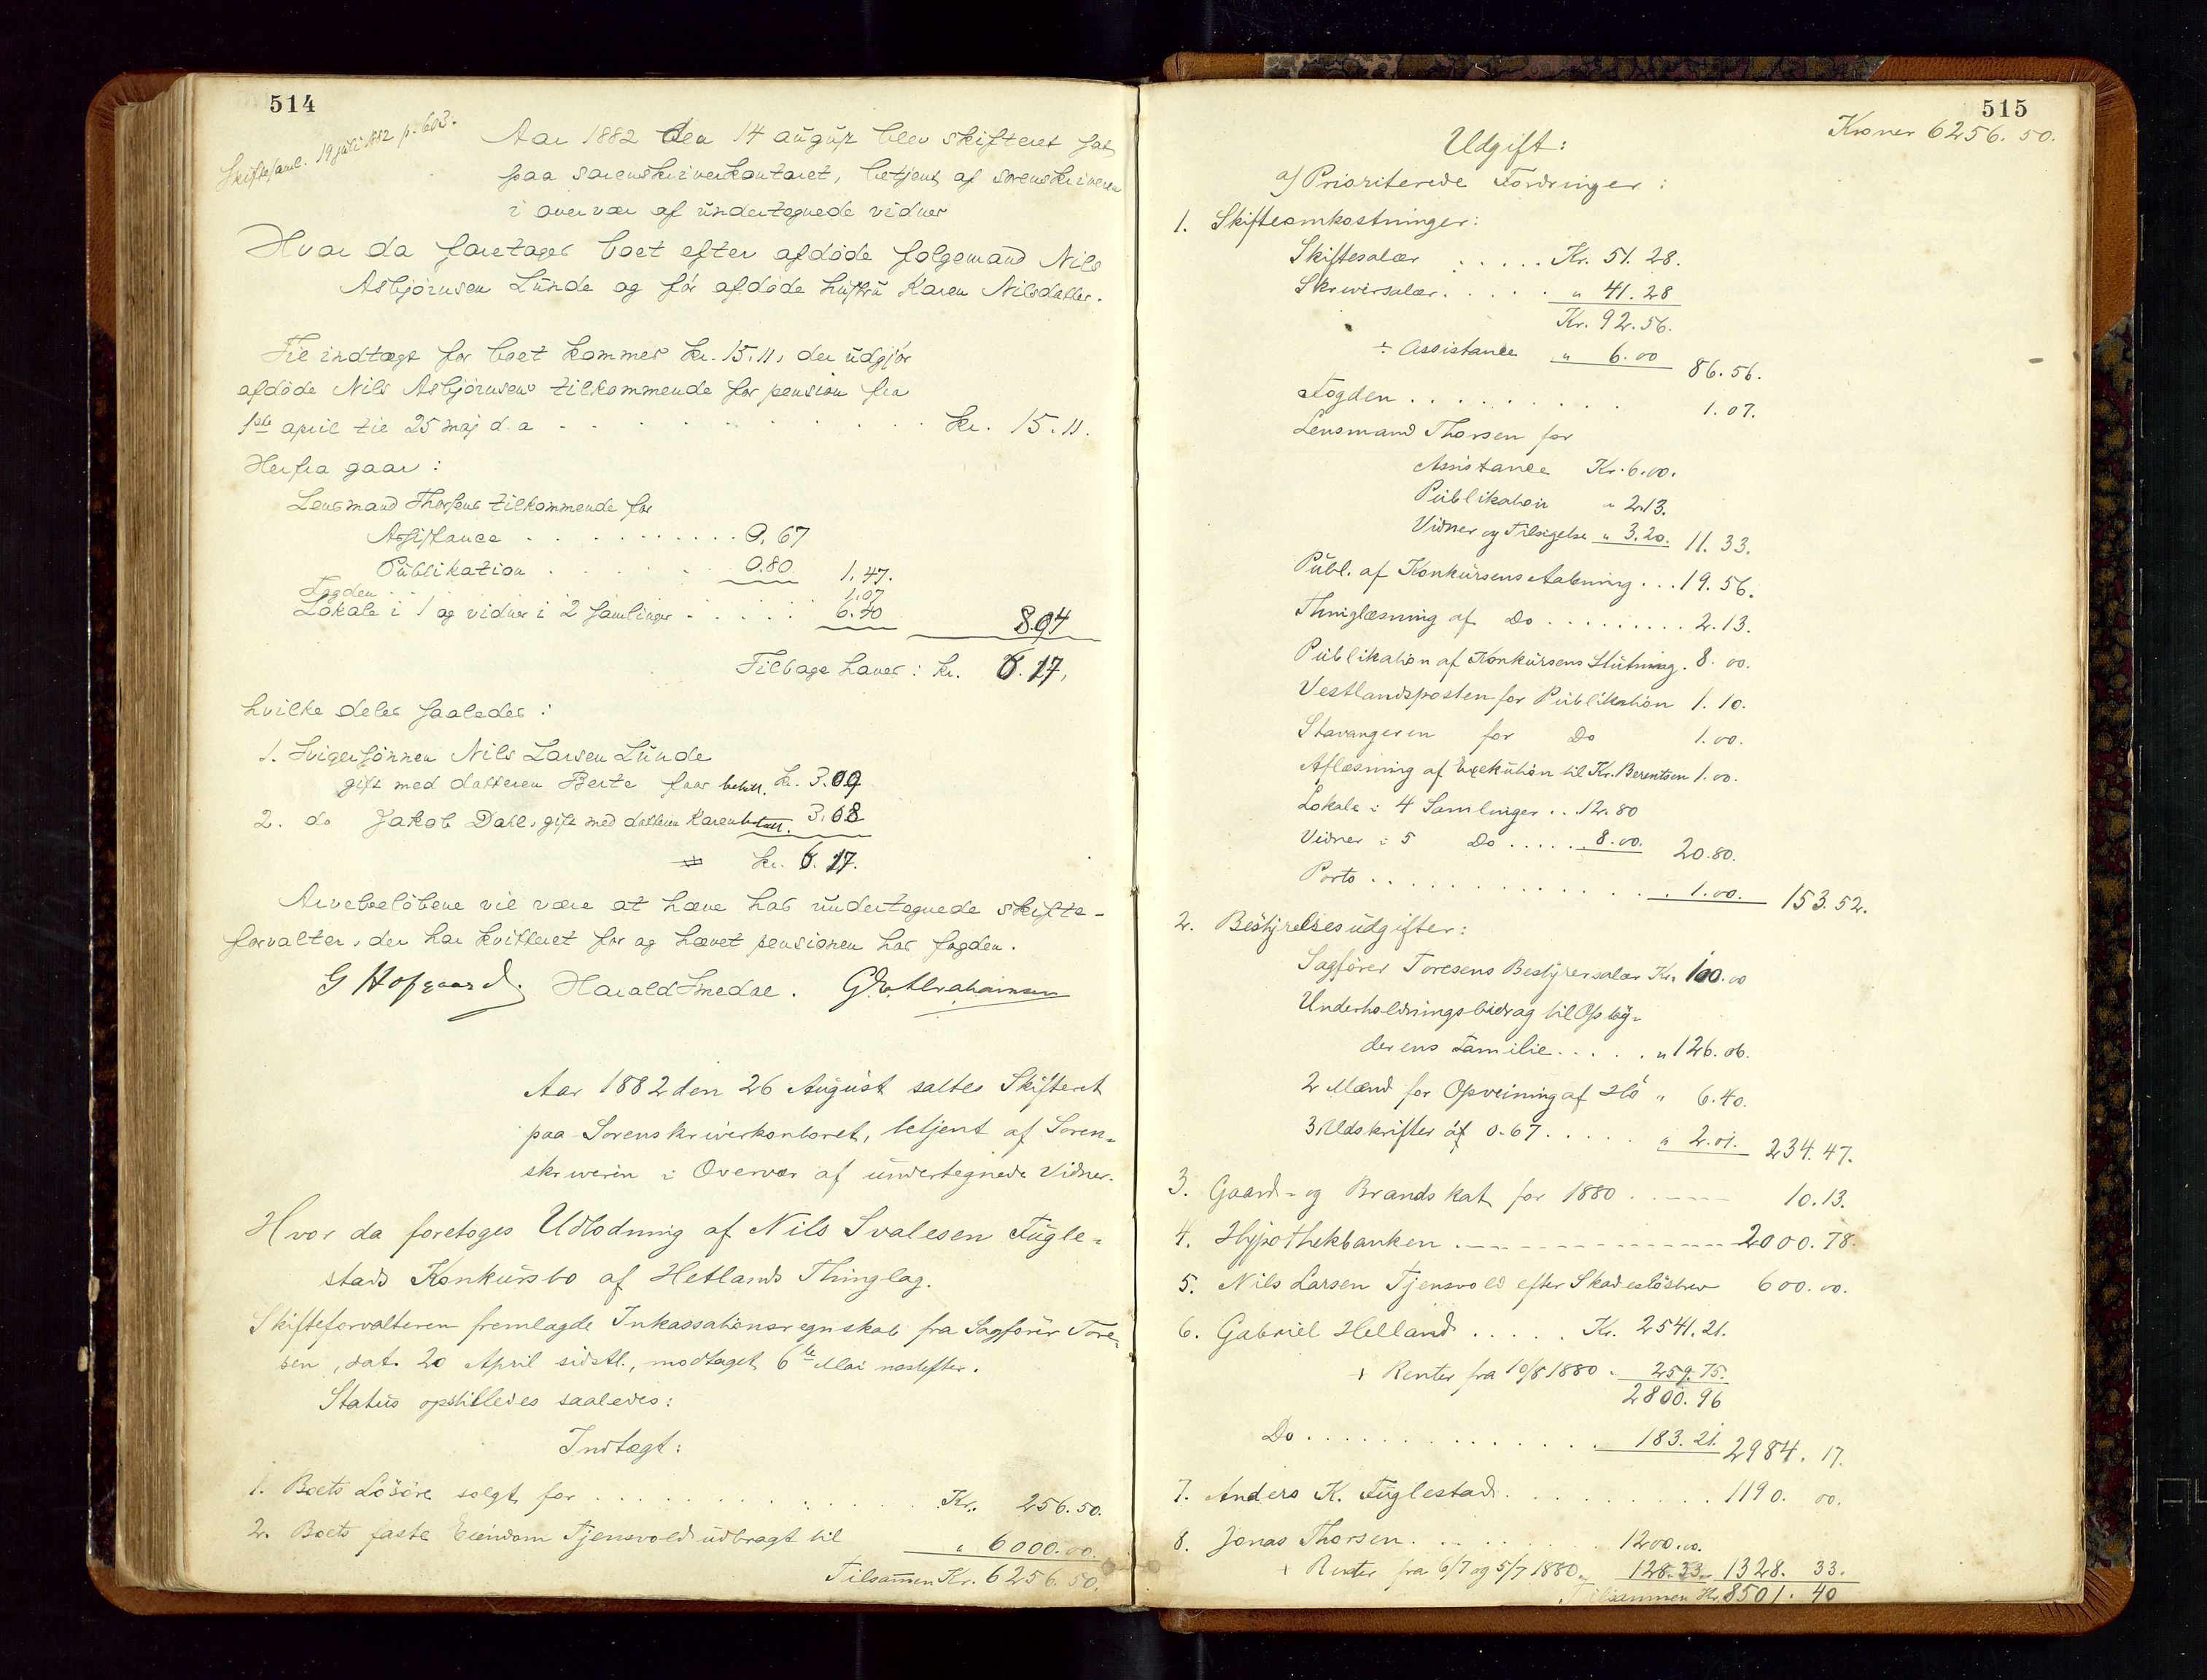 514
Skiftesaml. 19 juli 1882 p. 603.
Aar 1882 den 14 august blev skifteret sat
paa sorenskriverkontoret, betjent af sorenskriveren
i overvær af undertegnede vidner
Hvor da foretoges boet efter afdøde folgemand Nils
Asbjørnsen Lunde og før afdøde hustru Karen Nilsdatter.
Til indtægt for boet kommer kr. 15.11, der udgjør
afdøde Nils Asbjørnsens tilkommende for pension fra
1ste april til 25 maj d. a . . . . . . . . . . kr. 15.11.
Herfra gaar:
Lensmand Thorsens tilkommende for
Assistance . . . . . . . . . . 0.67
Publikation . . . . . . 0.80 1.47.
Fogden . . 1.07
Lokale i 1 og vidner i 2 samlinger . . . . . 6.40 8.94
Tilbage haves: kr. 6.17,
hvilke deles saaledes:
1. Svigersønnen Nils Larsen Lunde
gift med datteren Berte faar betalt. kr. 3.09
2. do Jakob Dahl, gift med datteren Karen betalt. 3.08
kr. 6.17.
Arvebeløbene vil være at hæve hos undertegnede skifte-
forvalter, der har kvitteret for og hævet pensionen hos fogden.
G Hofgaard. Harald Smedal. G. E. Abrahamsen
Aar 1882 den 26 August sattes Skifteret
paa Sorenskriverkontoret, betjent af Soren-
skriveren i Overvær af undertegnede Vidner.
Hvor da foretoges Udlodning af Nils Svalesen Fugle-
stads Konkursbo af Hetlands Thinglag.
Skifteforvalteren fremlagde Inkassationsregnskab fra Sagfører Tore-
sen, dat. 20 April sidstl., modtaget 6te Mai næstefter.
Status opstilledes saaledes:
Indtægt:
1. Boets Løsøre solgt for . . . . . . . . . . . . Kr. 256.50.
2. Boets faste Eiendom Tjensvold udbragt til " 6000.00.
Tilsammen Kr. 6256.50.
515
Kroner 6256.50.
Udgift:
a) Prioriterede Fordringer:
1. Skifteomkostninger:
Skiftesalær . . . . . Kr. 51.28.
Skriversalær . . . . . " 41.28
Kr. 92.56.
÷ Assistance " 6.00 86.56.
Fogden . . . . . . . . . 1.07.
Lensmand Thorsen for
Assistance Kr. 6.00.
Publikation " 2.13.
Vidner og Tilsigelse " 3.20. 11.33.
Publ. af Konkursens Aabning . . . 19.56.
Thinglæsning af Do . . . . . . . . . 2.13.
Publikation af Konkursens Slutning . 8.00.
Vestlandsposten for Publikation 1.10.
Stavangeren for Do 1.00.
Aflæsning af Exekution til Kr. Berentsen 1.00.
Lokale i 4 Samlinger . . 12.80
Vidner i 5 Do . . . . . 8.00. 20.80.
Porto . . . . . . . . . . . . . . 1.00. 153.52.
2. Bestyrelsesudgifter:
Sagfører Toresens Bestyrersalær Kr. 100.00
Underholdningsbidrag til Opby-
derens Familie . . . . . " 126.06.
2 Mænd for Opveining af Hø " 6.40.
3 Udskrifter af 0.67 . . . . . " 2.01. 234.47.
3. Gaard- og Brandskat for 1880 . . . . . 10.13.
4. Hypothekbanken . . . . . . . . . . 2000.78.
5. Nils Larsen Tjensvold efter Skadesløsbrev 600.00.
6. Gabriel Helland . . . . . Kr. 2541.21.
+ Renter fra 10/8 1880 . 259.75.
2800.96
Do . . . . . . . . . . . . . . . 183.21. 2984.17.
7. Anders K. Fuglestad . . . . . . . . . . 1190.00.
8. Jonas Thorsen . . . . . . . 1200.00.
+ Renter fra 6/7 og 5/7 1880 . 128.33. 1328.33.
Tilsammen Kr. 8501.40